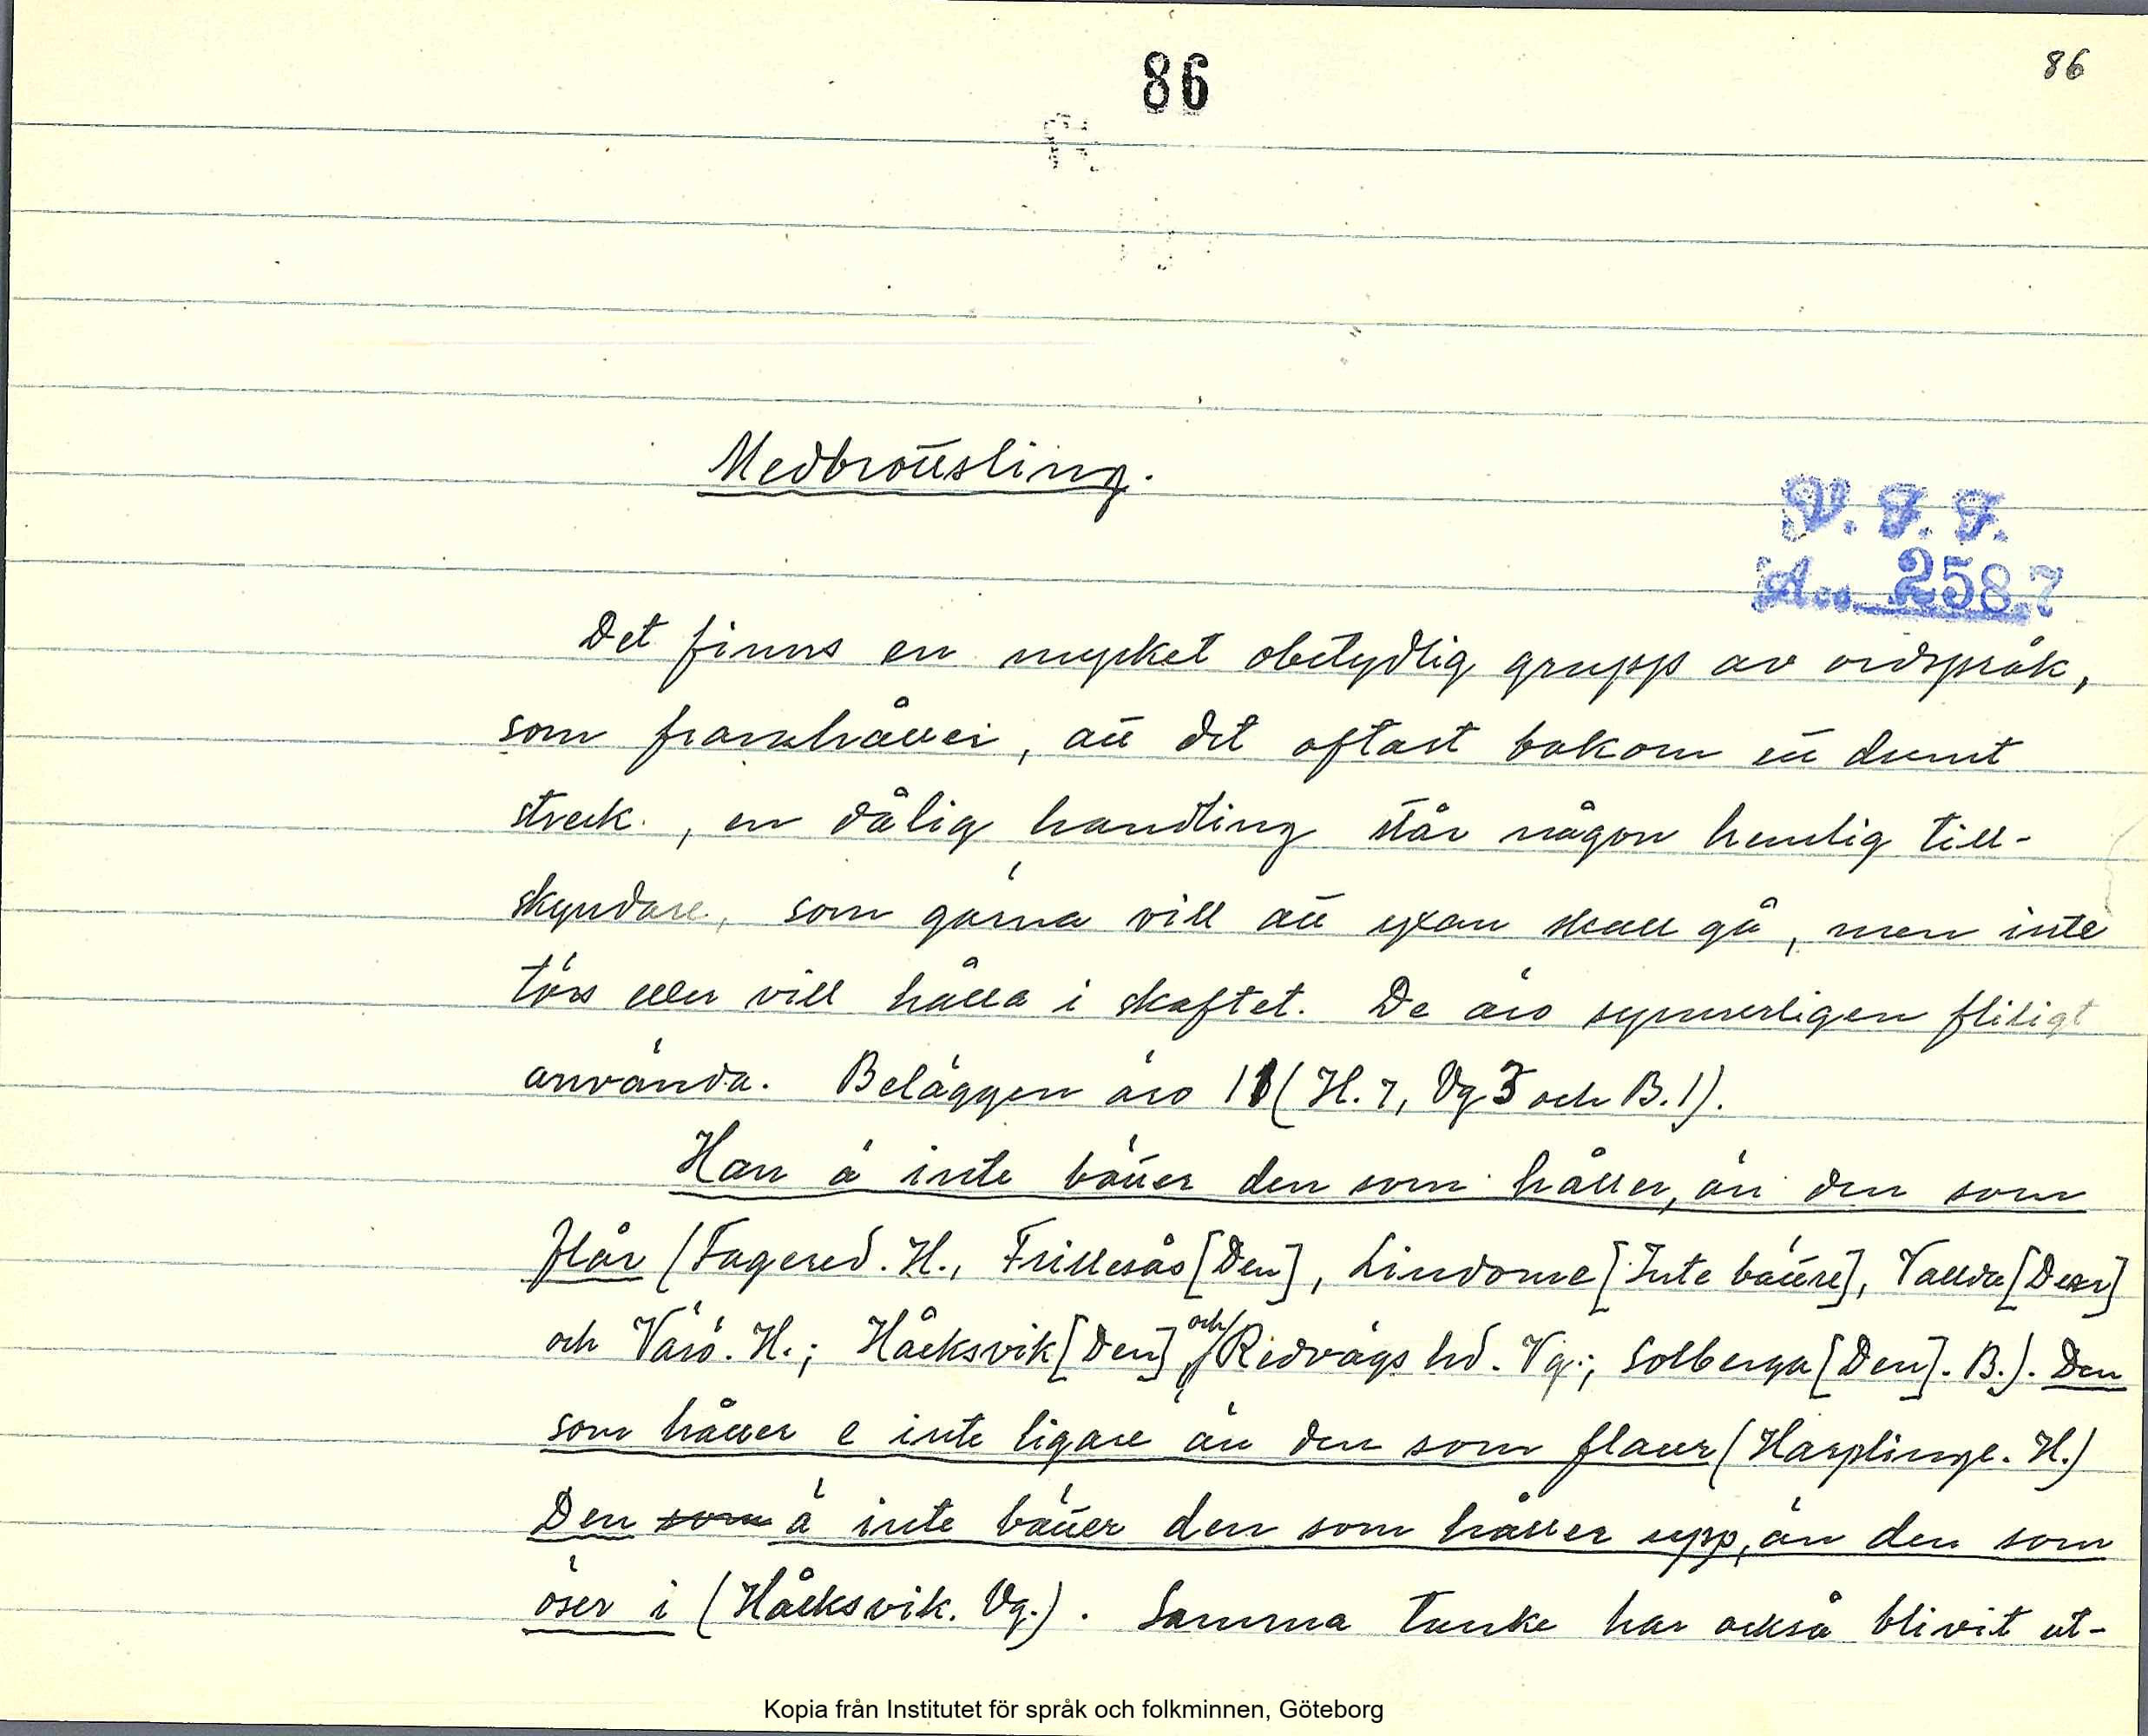 86
86
Medbrottsling.
V. F. F.
Acc. 2587
Det finns en mycket obetydlig grupp av ordspråk,
som framhåller, att det oftast bakom ett dumt
streck, en dålig handling står någon hemlig till-
skyndare, som gärna vill att yxan skall gå, men inte
törs eller vill hålla i skaftet. De äro synnerligen flitigt
använda. Beläggen äro 11 (H. 7, Vg 3 och B. 1).
Han ä inte bätter den som håller, än den som
flår (Fagered. H., Frillesås [Den], Lindome [Inte bättre], Vallda [Den]
och Värö. H.; Håcksvik [Den] och Redvägs hd. Vg.; Solberga [Den]. B.). Den
som håller e inte ligare än den som flaer (Harplinge. H.)
Den som ä inte bätter den som håller upp, än den som
öser i (Håcksvik. Vg.). Samma tanke har också blivit ut-
Kopia från Institutet för språk och folkminnen, Göteborg